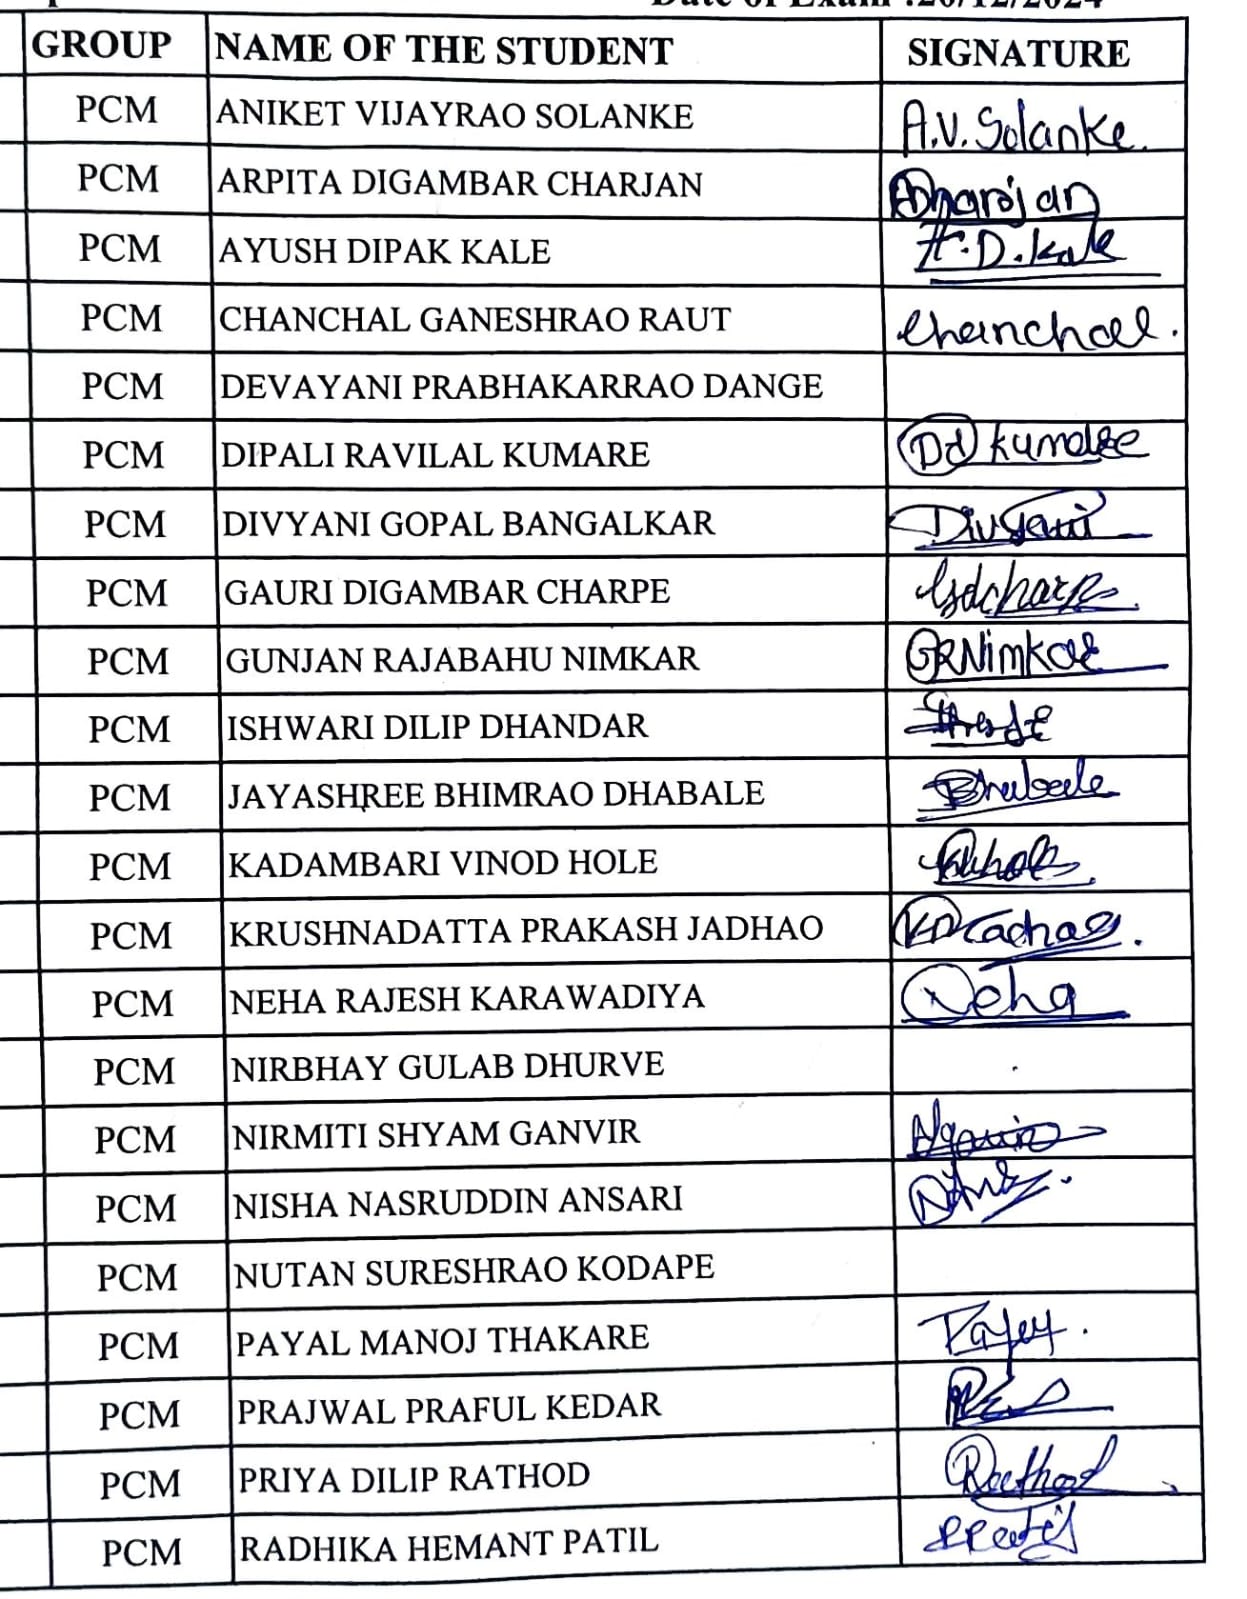 Date of Exam :20/12/2024
GROUP NAME OF THE STUDENT SIGNATURE
PCM ANIKET VIJAYRAO SOLANKE A.V. Solanke.
PCM ARPITA DIGAMBAR CHARJAN
PCM AYUSH DIPAK KALE A.D.Kale
PCM CHANCHAL GANESHRAO RAUT Chanchal.
PCM DEVAYANI PRABHAKARRAO DANGE
PCM DIPALI RAVILAL KUMARE
PCM DIVYANI GOPAL BANGALKAR Divyani
PCM GAURI DIGAMBAR CHARPE
PCM GUNJAN RAJABAHU NIMKAR GRNimkar
PCM ISHWARI DILIP DHANDAR
PCM JAYASHREE BHIMRAO DHABALE
PCM KADAMBARI VINOD HOLE
PCM KRUSHNADATTA PRAKASH JADHAO
PCM NEHA RAJESH KARAWADIYA Neha
PCM NIRBHAY GULAB DHURVE
PCM NIRMITI SHYAM GANVIR
PCM NISHA NASRUDDIN ANSARI
PCM NUTAN SURESHRAO KODAPE
PCM PAYAL MANOJ THAKARE
PCM PRAJWAL PRAFUL KEDAR
PCM PRIYA DILIP RATHOD
PCM RADHIKA HEMANT PATIL